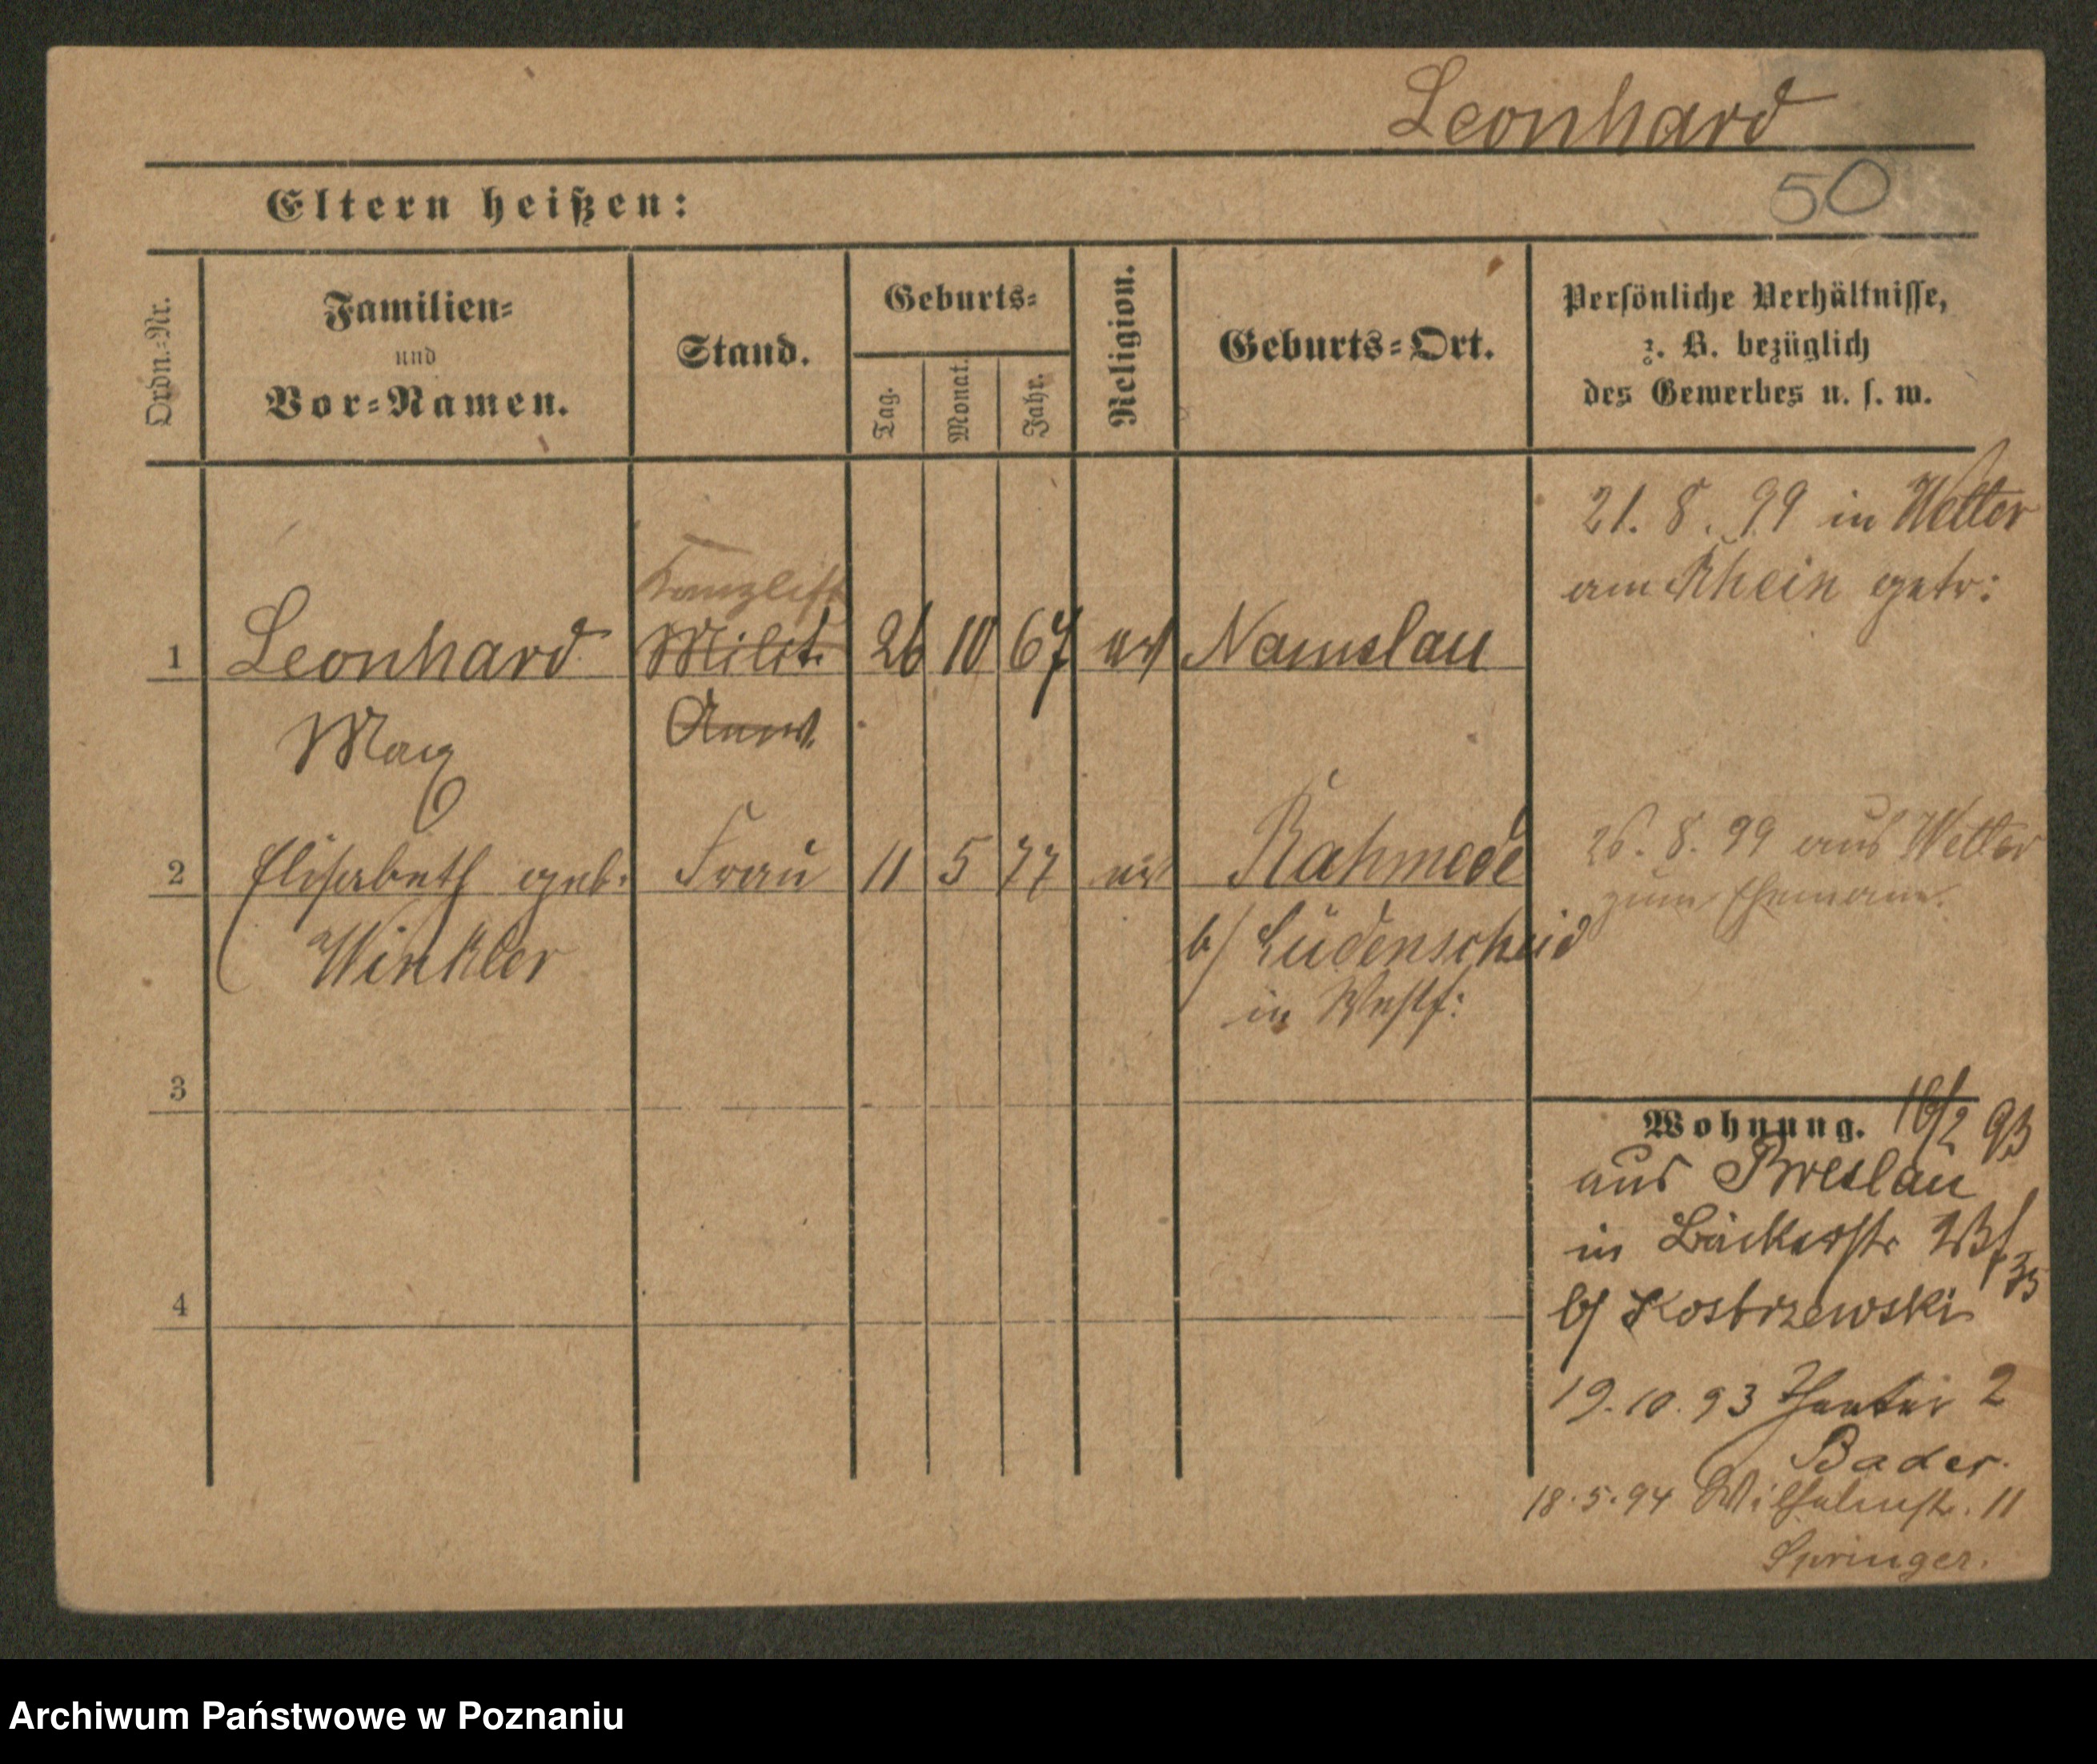 Leonhard
50
Eltern heißen:
Ordn.-Nr.
Familien-
und
Vor-Namen.
Stand.
Geburts-
Tag.
Monat.
Jahr.
Religion.
Geburts-Ort.
Persönliche Verhältnisse,
z. B. bezüglich
des Gewerbes u. s. w.
Kanzlist
1 Leonhard Milit. 26 10 67 ev Namslau
Max Anw.
21. 8. 99 in Wetter
am Rhein getr:
2 Elisabeth geb. Frau 11 5 77 ev Rahmede
Winkler b/ Lüdenscheid
in Westf:
26. 8. 99 aus Wetter
zum Ehemann.
3
4
Wohnung. 16/2 93
aus Breslau
in Bäckerstr
35
b/ Kostrzewski
19.10.93 Theater 2
Bader.
18.5.94 Wilhelmstr. 11
Springer.
Archiwum Państwowe w Poznaniu